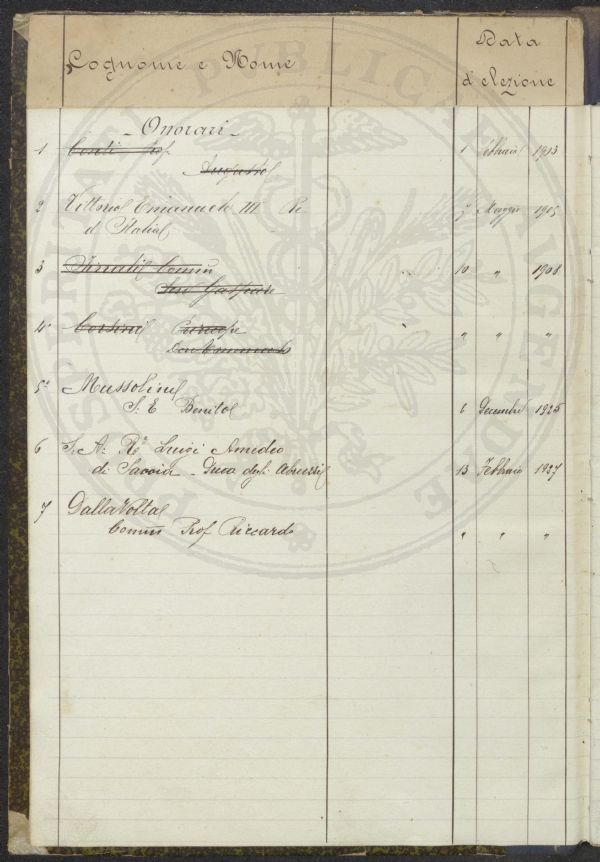 Cognome e Nome
Data
d'elezione
- Onorari -
1 Conti Prof 1 Febbraio 1903
Augusto
2 Vittorio Emanuele III Re 7 Maggio 1905
d'Italia
3 Comm 10 " 1908
Gaspare
4 Corsini " " "
5 Mussolini
S. E. Benito 6 Decembre 1925
6 S. A. R. Luigi Amedeo
di Savoia - Duca degli Abruzzi 13 Febbraio 1927
7 Dalla Volta
Comm Prof Riccardo " " "
PROSPERITATI PUBLICAE AUGENDAE